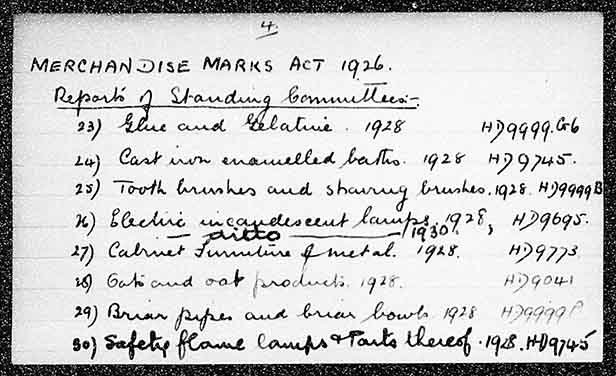 4.
MERCHANDISE MARKS ACT 1926.
Reports of Standing Committees:-
23) Glue and Gelatine. 1928 HD9999.G6
24) Cast iron enamelled baths. 1928 HD9745.
25) Tooth brushes and shaving brushes. 1928. HD9999B
26) Electric incandescent lamps. 1928, HD9695.
— ditto — 1930.
27) Cabinet Furniture of metal. 1928. HD9773
28) Oats and oat products. 1928. HD9041
29) Briar pipes and briar bowls 1928 HD9999P
30) Safety flame lamps & Parts thereof. 1928. HD9745